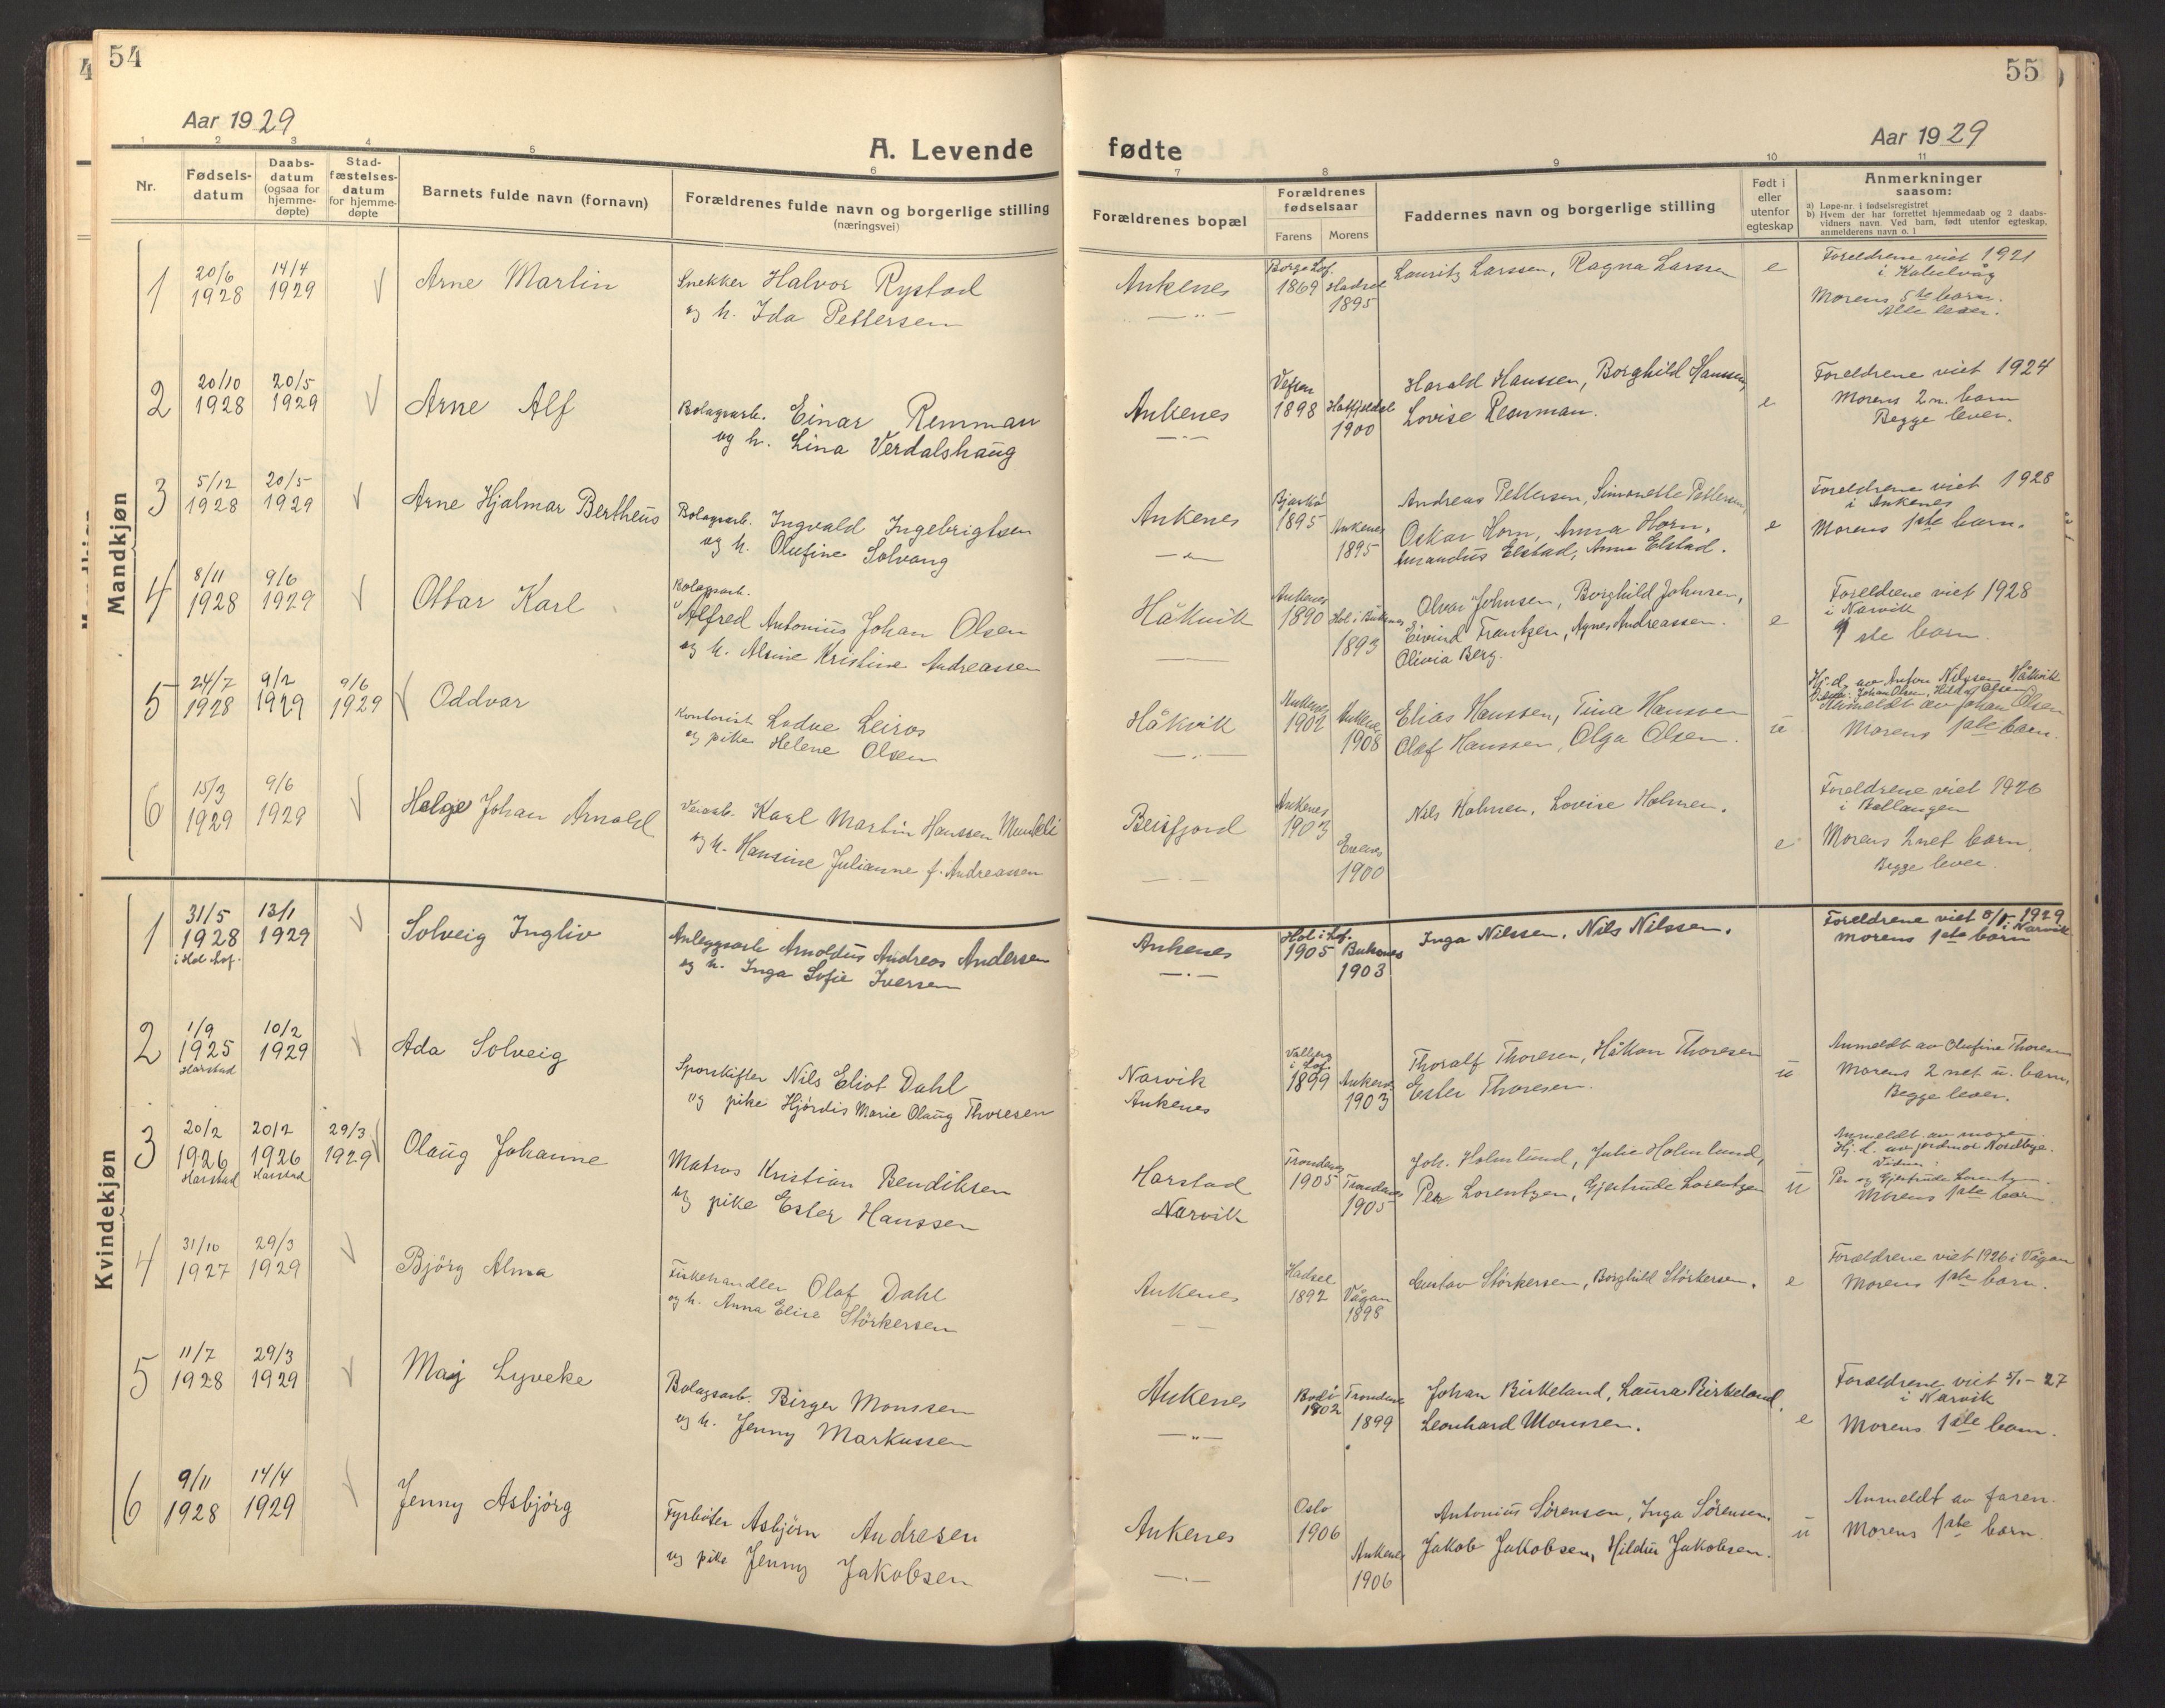 54
Aar 1929
A. Levende
1 2 3 4 5 6
Nr.
Fødsels-
datum
Daabs-
datum
(ogsaa for
hjemme-
døpte)
Stad-
fæstelses-
datum
for hjemme-
døpte
Barnets fulde navn (fornavn)
Forældrenes fulde navn og borgerlige stilling
(næringsvei)
Mandkjøn
1 20/6 14/4 Arne Martin Snekker Halvor Rystad
1928 1929 og h. Ida Pettersen
2 20/10 20/5 Arne Alf Bolagsarb. Einar Remman
1928 1929 og h. Lina Verdalshaug
3 5/12 20/5 Arne Hjalmar Bertheus Bolagsarb. Ingvald Ingebrigtsen
1928 1929 og h. Olufine Solvang
4 8/11 9/6 Ottar Karl Bolagsarb.
1928 1929 Alfred Antonius Johan Olsen
og h. Alsine Kristine Andreassen
5 24/7 9/2 9/6 Oddvar Kontorist Ludve Leiros
1928 1929 1929 og pike Helene Olsen
6 15/3 9/6 Helge Johan Arnold Veiarb. Karl Martin Hanssen
1929 1929 og h. Hansine Julianne f. Andreassen
Kvindekjøn
1 31/5 13/1 Solveig Ingliv Anleggsarb. Arnoldus Andreas Andersen
1928 1929 og h. Inga Sofie Iversen
i Hol Lof.
2 1/9 10/2 Ada Solveig Sporskifter Nils Eliot Dahl
1925 1929 og pike Hjørdis Marie Olaug Thoresen
Harstad
3 20/2 20/2 29/3 Olaug Johanne Matros Kristian Bendiksen
1926 1926 1929 og pike Ester Hanssen
Harstad Harstad
4 31/10 29/3 Bjørg Alma Fiskehandler Olaf Dahl
1927 1929 og h. Anna Elise Störkersen
5 11/7 29/3 Maj Lyveke Bolagsarb. Birger Monssen
1928 1929 og h. Jenny Markussen
6 9/11 14/4 Jenny Asbjörg Fyrbøter Asbjörn Andresen
1928 1929 og pike Jenny Jakobsen
55
Aar 1929
fødte
7 8 9 10 11
Forældrenes bopæl
Forældrenes
fødselsaar
Farens Morens
Faddernes navn og borgerlige stilling
Født i
eller
utenfor
egteskap
Anmerkninger
saasom:
a) Løpe-nr. i fødselsregistret
b) Hvem der har forrettet hjemmedaab og 2 daabs-
vidners navn. Ved barn, født utenfor egteskap,
anmelderens navn o. l
Ankenes Borge Lof. 1869 Hadsel 1895 Lauritz Larssen, Ragna Larssen e Foreldrene viet 1921
i Kabelvåg
Morens 5te barn.
Alle lever.
Ankenes Vefsen 1898 Hatfjeldal 1900 Harald Hanssen, Borghild Hanssen,
Lovise Remman. e
Foreldrene viet 1924
Morens 2n. barn
Begge lever.
Ankenes Bjarkö 1895 Ankenes 1895 Andreas Pettersen, Simonette Pettersen,
Oskar Horn, Anna Horn,
Amandus Elstad, Anna Elstad. e
Foreldrene viet 1928
i Ankenes
Morens 1ste barn.
Håkvik Ankenes 1890 Hol i Buksnes 1893 Olvar Johnsen, Borghild Johnsen,
Eivind Frantzen, Agnes Andreassen.
Olivia Berg. e
Foreldrene viet 1928
i Narvik
1 ste barn.
Håkvik Ankenes 1902 Ankenes 1908 Elias Hanssen, Tina Hanssen
Olaf Hanssen, Olga Olsen. u
Hj. d. av Anton Nilssen Håkvik
Johan Olsen, Hilda Olsen
Anmeldt av Johan Olsen
Morens 1ste barn.
Beisfjord Ankenes 1903 Evenes 1900 Nils Holmen, Lovise Holmen. e
Foreldrene viet 1926
i Ballangen
Morens 2net barn.
Begge lever.
Ankenes Hol i Lof. 1905 Buksnes 1903 Inga Nilssen, Nils Nilssen.
Foreldrene viet 1929
i Narvik
Morens 1ste barn
Narvik
Ankenes Valberg i Lof. 1899 Ankenes 1903 Thoralf Thoresen, Håkon Thoresen
Ester Thoresen. u
Anmeldt av Olufine Thoresen
Morens 2 net u. barn,
Begge lever.
Harstad
Narvik Trondenes 1905 Trondenes 1905 Joh. Holmlund, Julie Holmlund,
Per Lorentzen, Gjertrude Lorentzen u
Anmeldt av moren.
Hj. d. av jordmor Nordbye.
Vidner:
Per og Gjertrude Lorentzen
Morens 1ste barn
Ankenes Hadsel 1892 Vågan 1898 Gustav Störkersen, Borghild Störkersen. e
Foreldrene viet 1926 i Vågan
Morens 1ste barn.
Ankenes Bodö 1902 Trondenes 1899 Johan Birkeland, Laura Birkeland,
Leonhard Monssen. e
Foreldrene viet 5/1-27
i Narvik
Morens 1ste barn.
Ankenes Oslo 1906 Ankenes 1906 Antonius Sörensen, Inga Sörensen,
Jakob Jakobsen, Hildur Jakobsen. u
Anmeldt av faren.
Morens 1ste barn.